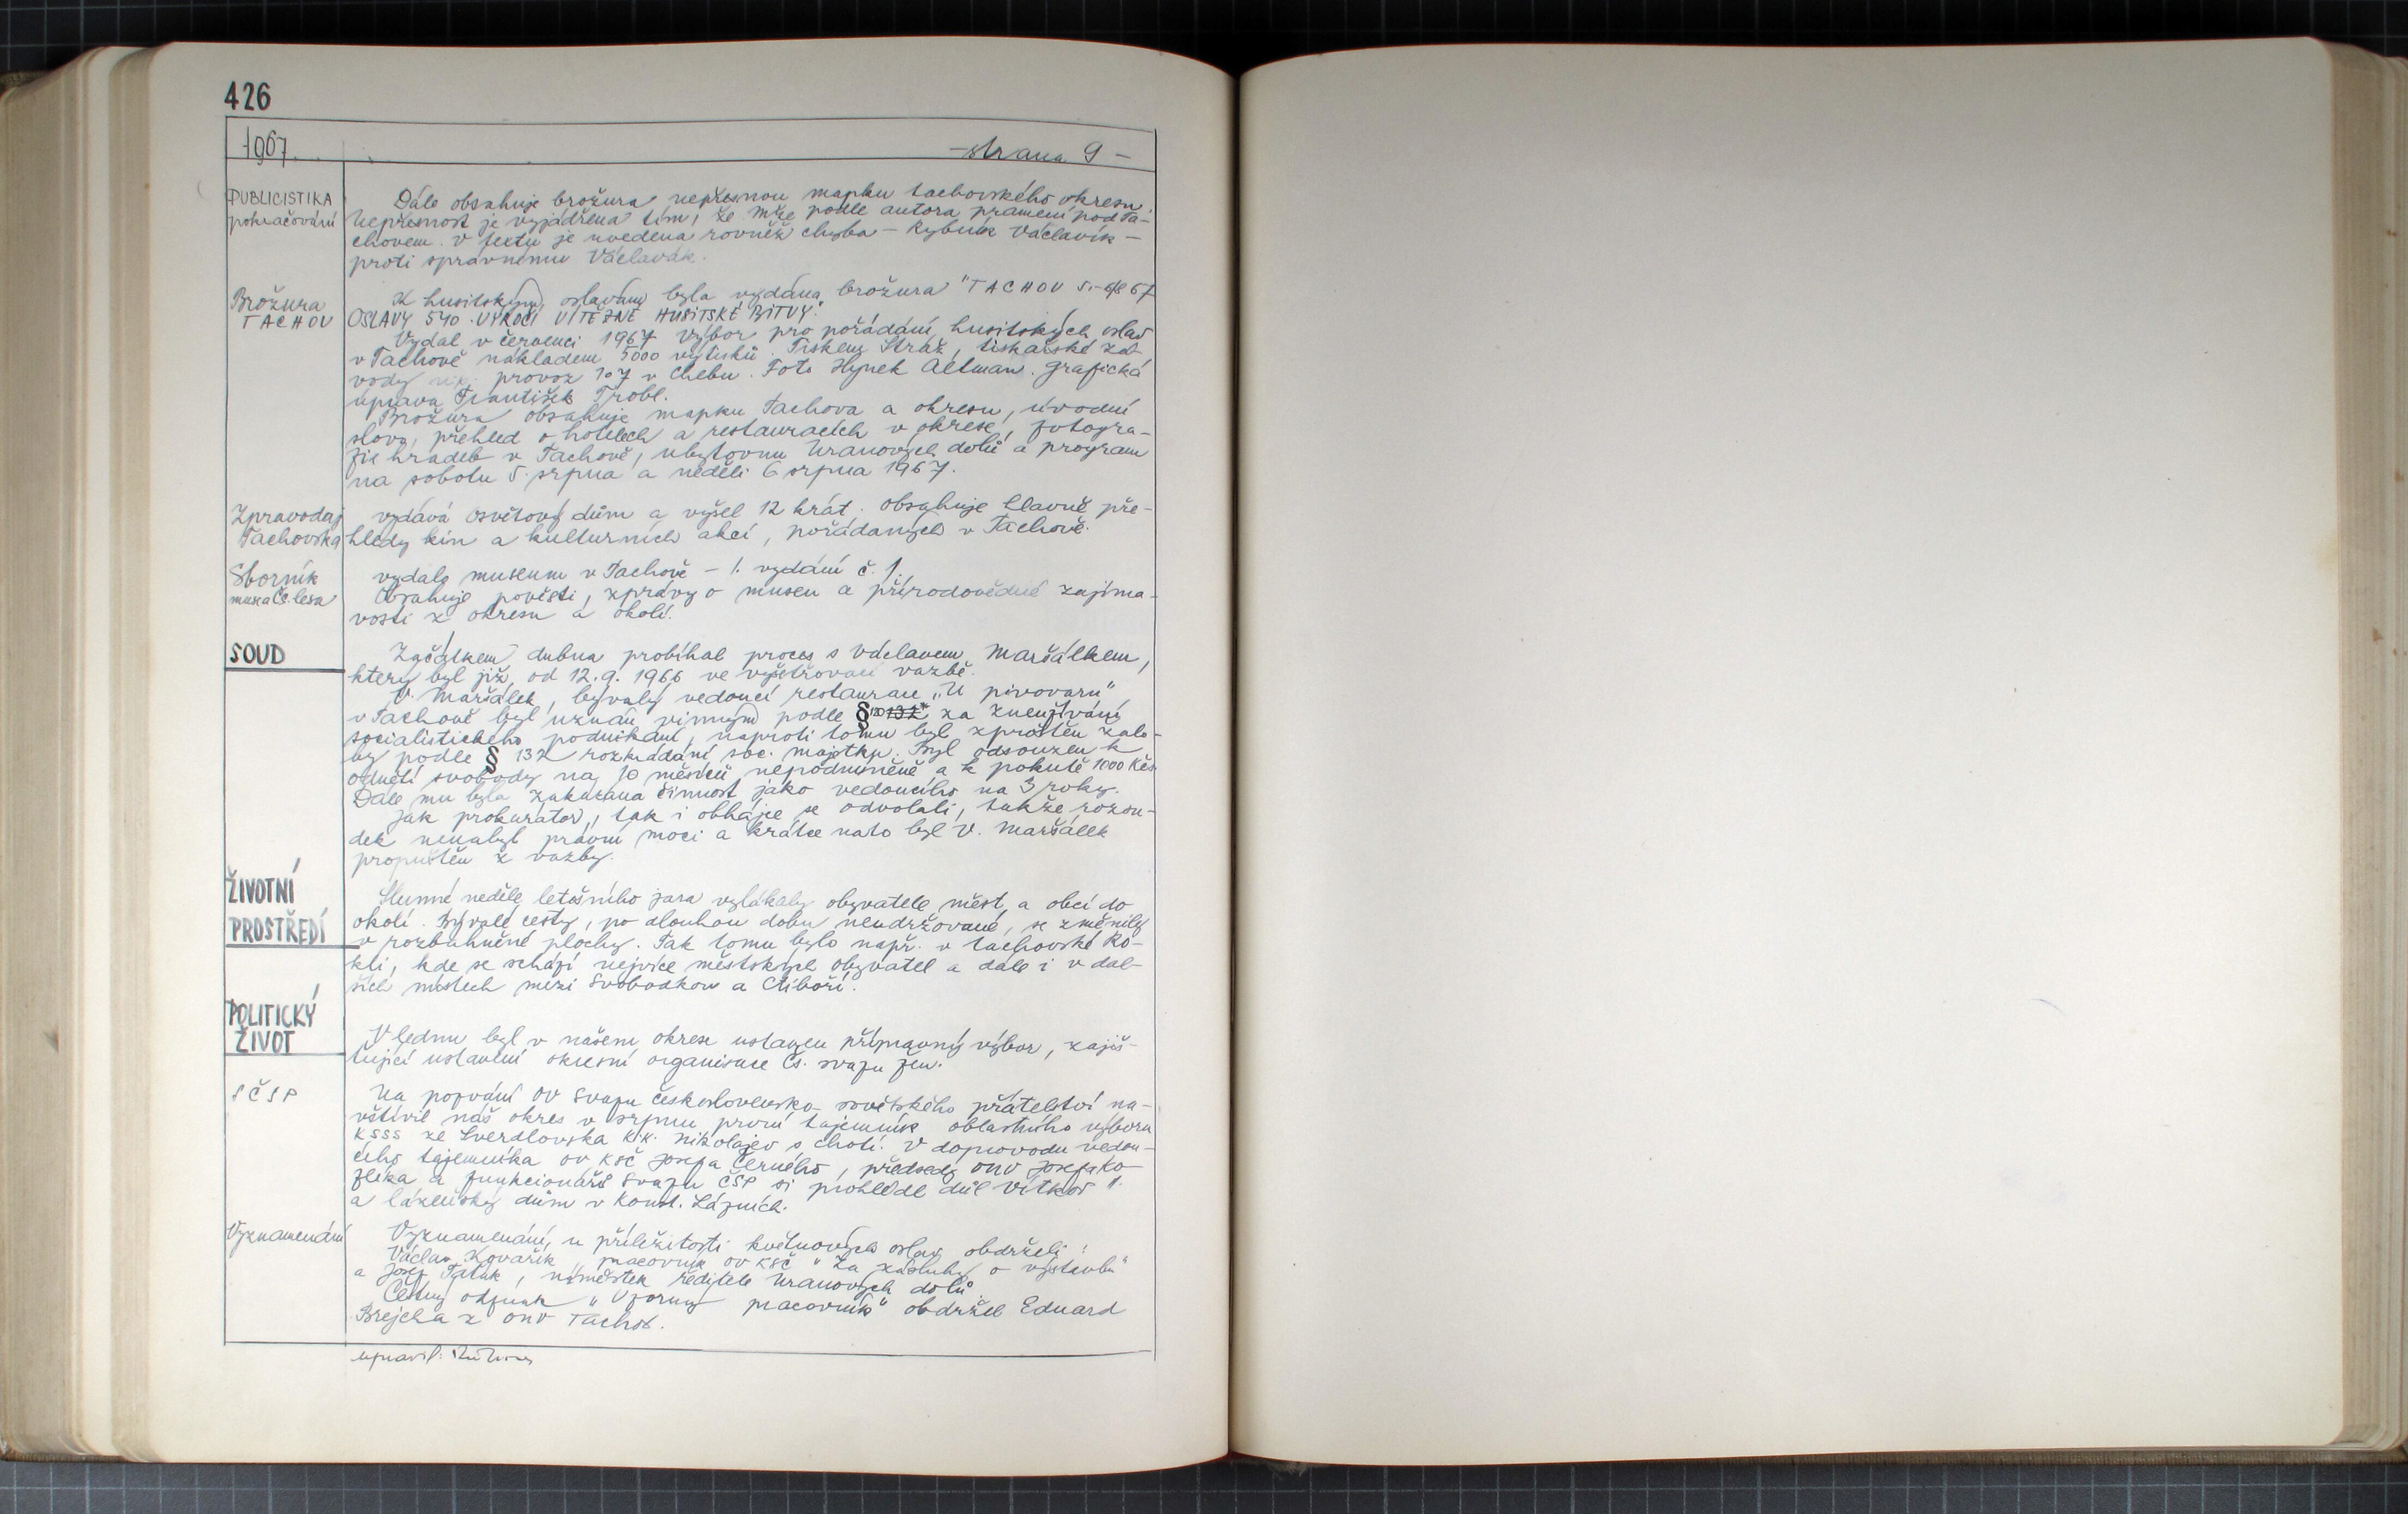 426
1967. - strana 9 -
PUBLICISTIKA
pokračování
Dále obsahuje brožura nepřesnou mapku tachovského okresu.
Nepřesnost je vyjádřena tím, že Mže podle autora pramení pod Ta-
chovem. V textu je uvedena rovněž chyba - Rybník Václavík -
proti správnému Václavák.
Brožura
TACHOV
K husitským oslavám byla vydána brožura "TACHOV 5.-6/8 67
OSLAVY 540. VÝROČÍ VÍTĚZNÉ HUSITSKÉ BITVY".
Vydal v červenci 1967 Výbor pro pořádání husitských oslav
v Tachově nákladem 5000 výtisků. Tiskem Stráž, tiskařské zá-
vody provoz 107 v Chebu. Foto Hynek Altman. Grafická
úprava František Trobl.
Brožura obsahuje mapku Tachova a okresu, úvodní
slovo, přehled o hotelech a restauracích v okrese, fotogra-
fie hradeb v Tachově, ubytovnu Uranových dolů a program
na sobotu 5. srpna a neděli 6 srpna 1967.
Zpravodaj
Tachovska
vydává osvětový dům a vyšel 12 krát. Obsahuje hlavně pře-
hledy kin a kulturních akcí, pořádaných v Tachově.
Sborník
musea Čs. lesa
vydalo museum v Tachově - 1. vydání č. 1.
Obsahuje pověsti, zprávy o museu a přírodovědné zajíma-
vosti z okresu a okolí.
SOUD
Začátkem dubna probíhal proces s Václavem Maršálkem,
který byl již od 12.9. 1966 ve vyšetřovací vazbě.
V. Maršálek, bývalý vedoucí restaurace „U pivovaru"
v Tachově byl uznán vinným podle § 120 132 za zneužívání
socialistického podnikání, naproti tomu byl zproštěn žalo-
by podle § 132 rozkrádání soc. majetku. Byl odsouzen k
odnětí svobody na 10 měsíců nepodmíněně a k pokutě 1000 Kčs.
Dále mu byla zakázána činnost jako vedoucího na 3 roky.
Jak prokurátor, tak i obhájce se odvolali, takže rozsu-
dek nenabyl právní moci a krátce nato byl V. Maršálek
propuštěn z vazby.
ŽIVOTNÍ
PROSTŘEDÍ
Slunné neděle letošního jara vylákaly obyvatele měst a obcí do
okolí. Bývalé cesty, po dlouhou dobu neudržované, se změnily
v rozbahněné plochy. Tak tomu bylo např. v tachovské Ro-
kli, kde se schází nejvíce městských obyvatel a dále i v dal-
ších místech mezi Svobodkou a Ctiboří.
POLITICKÝ
ŽIVOT
V lednu byl v našem okrese ustaven přípravný výbor, zajiš-
ťující ustavení okresní organisace Čs. svazu žen.
SČSP
Na pozvání OV Svazu československo sovětského přátelství na-
vštívil náš okres v srpnu první tajemník oblastního výboru
KSSS ze Sverdlovska K.K. Nikolajev s chotí. V doprovodu vedou-
cího tajemníka OV KSČ Josefa Černého, předsedy ONV Josefa Ko-
zlíka a funkcionářů Svazu ČSP si prohlédl důl Vítkov 1.
a lázeňský dům v Konst. Lázních.
Vyznamenání
Vyznamenání u příležitosti květnových oslav obdrželi:
Václav Kovařík, pracovník OV KSČ "Za zásluhy o výstavbu"
a Josef Tatek, náměstek ředitele Uranových dolů.
Čestný odznak „Vzorný pracovník" obdržel Eduard
Brejcha z ONV Tachov.
upravil: